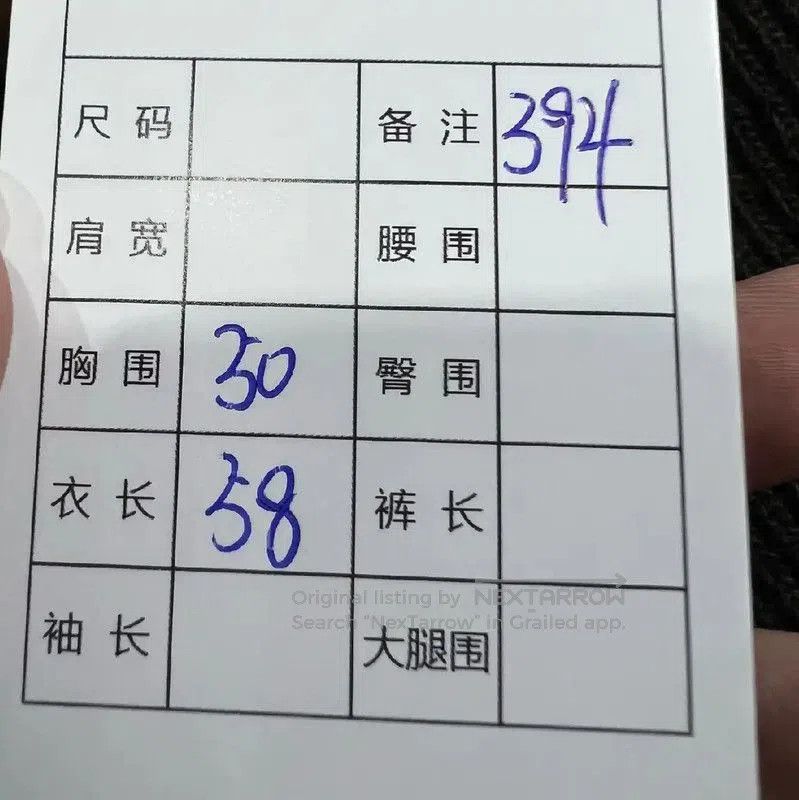 尺码 备注 394
肩宽 腰围
胸围 50 臀围
衣长 58 裤长
Original listing by NEXTARROW
Search "NexTarrow" in Grailed app.
袖长 大腿围